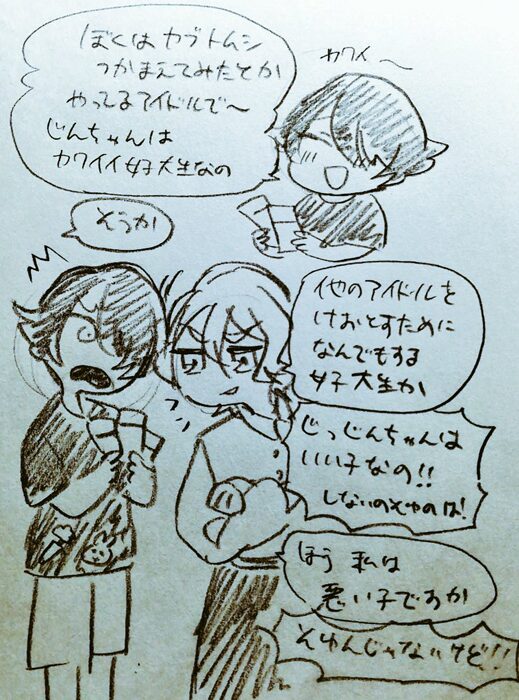 ぼくは カブトムシ
つかまえてみたとか
やってるアイドルで〜
じんちゃんは
カワイイ女子大生なの
カワイイ〜
そうか
他のアイドルを
けおとすために
なんでもする
女子大生か
じっじんちゃんは
いい子なの!!
しないのそゆのは!
ほう 私は
悪い子ですか
そゆんじゃないけど!!